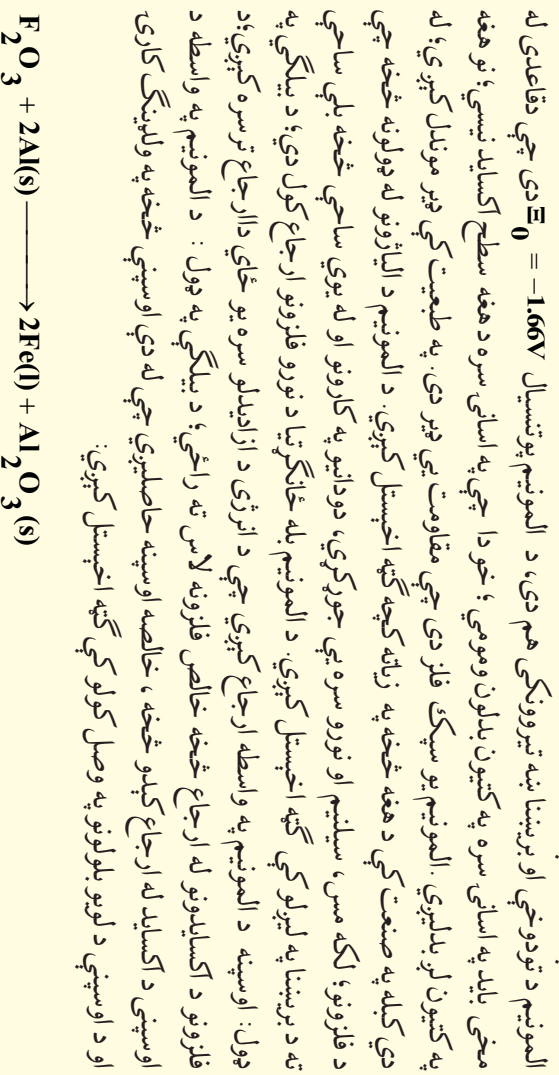 المونیم د تودوخي او بریښنا ښه تیروونکی هم دی، د المونیم پوتنسیال Ξ0 = −1.66V دی چي دقاعدی له
مخي باید په اسانی سره په کتیون بدلون ومومي ؛ خو دا چي په اسانی سره د هغه سطح اکساید نیسي؛ نو هغه
په کتیون لږ بدلیږي .المونیم یو سپک فلز دی چي مقاومت یي ډیر دی. په طبیعت کي ډیر موندل کیږي؛ له
دي کبله په صنعت کي د هغه څخه په زیاته کچه ګټه اخیستل کیږي. د المونیم د الیاژونو له ډولونه څخه چي
د فلزونو؛ لکه مس، سیلنیم او نورو سره یي جوړکړي، دودانیو په کارونو او له یوي ساحي څخه بلي ساحي
ته د بریښنا په لیږلو کي ګټه اخیستل کیږي. د المونیم بله ځانګړتیا د نورو فلزونو ارجاع کول دي؛ د بیلګي په
ډول: اوسپنه د المونیم په واسطه ارجاع کیږي چي د انرژی د ازادیدلو سره یو ځای داارجاع ترسره کیږي؛د
فلزونو د اکسایدونو له ارجاع څخه خالص فلزونه لاس ته راځي؛ د بیلګي په ډول : د المونیم په واسطه د
اوسپني د اکساید له ارجاع کیدو څخه ، خالصه اوسپنه حاصلیږي چي له دي اوسپني څخه په ولډینګ کاری
او د اوسپني د لویو بلولونو په وصل کولو کي ګټه اخیستل کیږي:
F2O3 + 2Al(s) ⟶ 2Fe(l) + Al2O3(s)